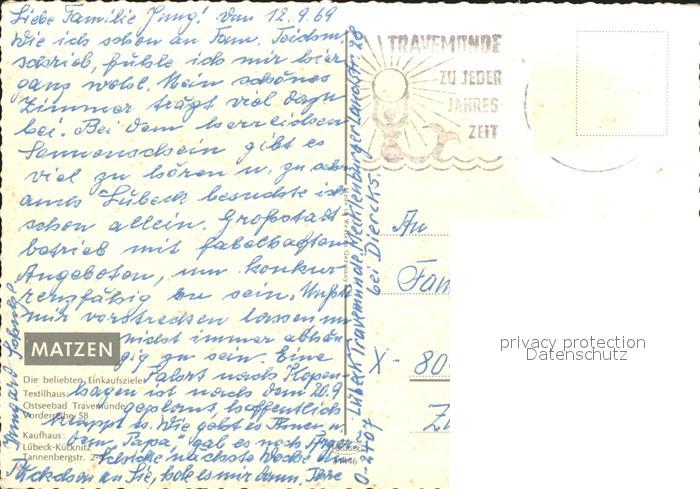 Liebe Familie Jung! Den 12.9.69
Wie ich schon an Fam.
schrieb, fühle ich mir hier
ganz wohl. Mein schönes
Zimmer trägt viel dazu
bei. Bei dem herrlichen
Sonnenschein gibt es
viel zu hören u. zu
auch Lübeck besuchte ich
schon allein. Großstadt
betrieb mit fabelhaften
Angeboten, um konkur-
renzfähig zu sein.
mir vorstrecken lassen um
nicht immer abhän
gig zu sein. Eine
Fahrt nach Kopen-
hagen ist nach dem 20.9
geplant, hoffentlich
klappt es. Wie geht es Ihnen u.
dem "Papa" gab es noch
nächste Woche ein
Päckchen an Sie, hole es mir dann, Ihre
MATZEN
Die beliebten Einkaufsziele
Textilhaus:
Ostseebad Travemünde
Vorderreihe 58
Kaufhaus:
Lübeck-Kücknitz
Tannenbergstr. 2
O-2407 Lübeck Travemünde, Mecklenburger Landstr. 28
bei Diercks.
TRAVEMÜNDE
ZU JEDER
JAHRES-
ZEIT
An
Fam
X - 80
privacy protection
Datenschutz